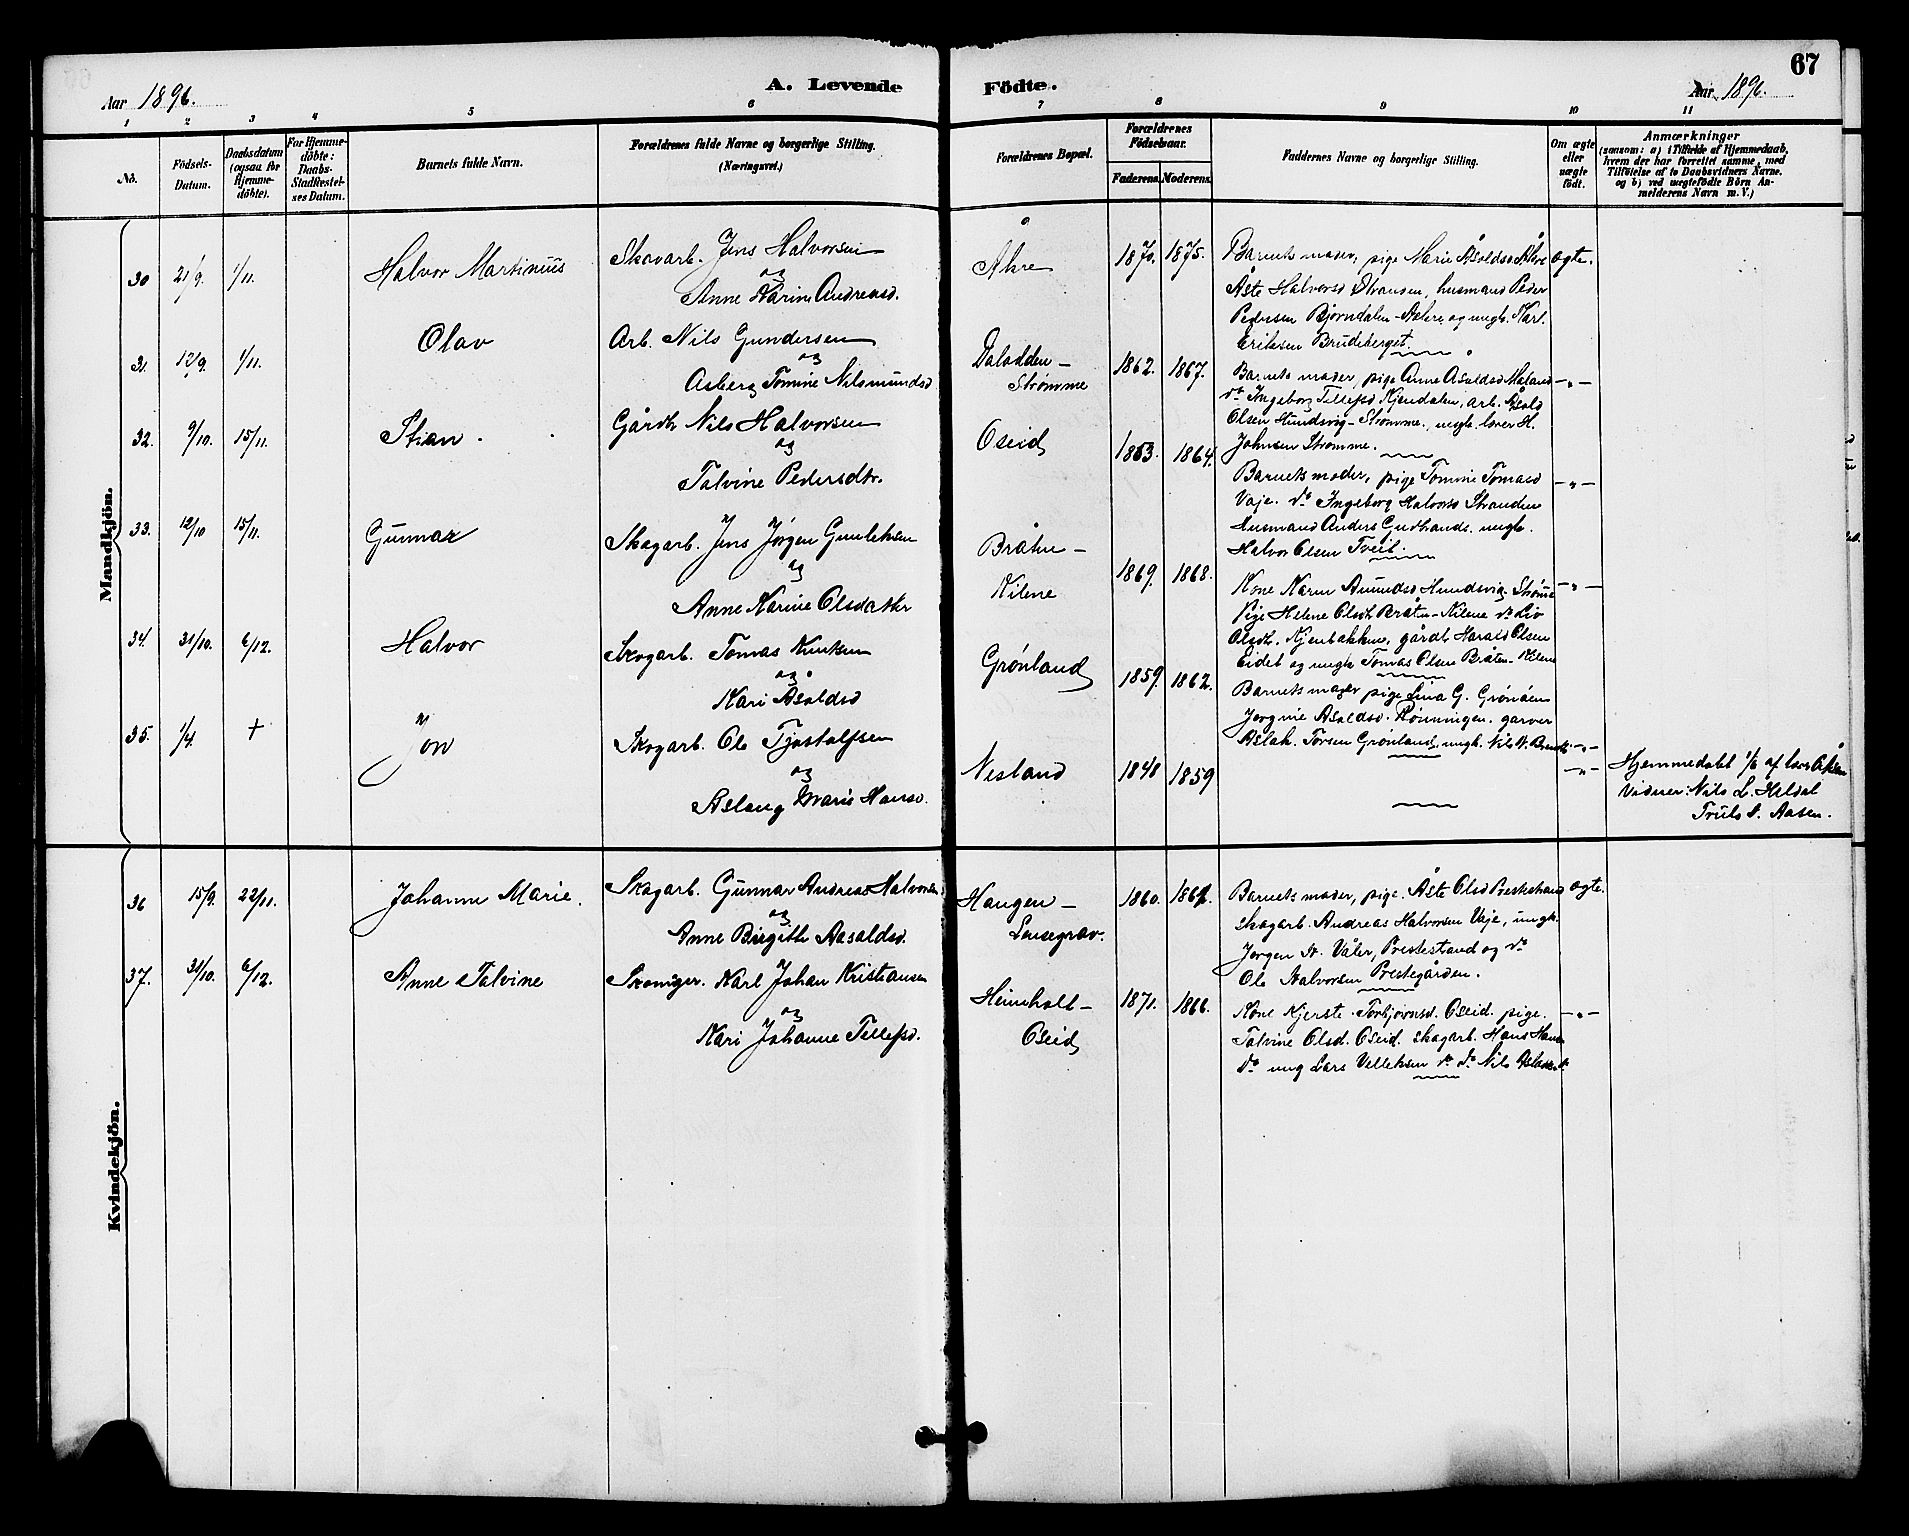 67
Aar 1896.
A. Levende Födte.
Aar 1896.
1 2 3 4 5 6 7 8 9 10 11
No.
Födsels-Datum.
Daabsdatum (ogsaa for Hjemme-döbte).
For Hjemme-döbte: Daabs-Stadfestel-ses Datum.
Barnets fulde Navn.
Forældrenes fulde Navne og borgerlige Stilling.
(Næringsvei.)
Forældrenes Bopæl.
Forældrenes Födselsaar.
Faderens.
Moderens.
Faddernes Navne og borgerlige Stilling.
Om ægte eller uægte födt.
Anmærkninger
(saasom: a) i Tilfælde af Hjemmedaab,
hvem der har forrettet samme, med
Tilföielse af to Daabsvidners Navne,
og b) ved uægtefödte Börn An-
melderens Navn m. V.)
Mandkjön.
30 21/9. 1/11. Halvor Martinius
Skovarb. Jens Halvorsen
og
Anne Karine Andreasd.
Åkre 1870. 1875.
Barnets moder, pige Marie Åsoldsd Åkre ægte.
Åste Halvorsd Stranden, husmand Peder
Pedersen Bjørndalen og ungk. Karl
Eriksen Brudeberget.
31. 12/9. 1/11. Olav
Arb. Nils Gundersen
og
Asberg Tomine Nilsmundsd
Daladden-
Strømme
1862. 1867.
Barnets moder, pige Anne Asoldsd -"-
do Ingeborg Tellefsd Kjendalen, arb. Åsold
Olsen Hundsvig-Strømme, ungk. lærer H.
Johnsen Strømme.
32. 9/10. 15/11. Stian
Gårdb Nils Halvorsen
og
Talvine Pedersdtr.
Oseid 1863. 1864.
Barnets moder, pige Tomine Tomasd -"-
Vaje. do Ingeborg Halvorsd Stranden
Husmand Anders ungk.
Halvor Olsen Tveit.
33. 12/10 15/11. Gunnar
Skogarb. Jens Jørgen Gunleksen
og
Anne Karine Olsdatter
Bråten-
Kilene
1869. 1868.
Kone Karen Amundsd Hundsvig Strømme -"-
Pige Helene Olsdt Bråten-Kilene do Liv
Olsdt. Kjenbakken, gårdb Harald Olsen
Eidet og ungk Tomas Olsen Bråten-Kilene
34. 31/10. 6/12. Halvor
Skogarb. Tomas Knutsen
og
Kari Åsoldsd
Grønland 1859. 1862.
Barnets moder pige Lina G. Grønåen
Jorgine Asoldsd. Rønningen. garver
Aslak. Torsen Grønland, ungk. Nils N. -"-
35. 1/4. + Jon
Skogarb. Ole Tjøstolfsen
og
Aslaug Marie Hansd.
Nesland 1848 1859
-"-
Hjemmedøbt 1/6 af lærer
Vidner: Nils L. Heldal
Truls S. Aasen.
Kvindekjön.
36 15/9. 22/11. Johanne Marie.
Skogarb. Gunnar Andreas Halvorsen
og
Anne Birgitte Aasoldsd.
Haugen-
Lensegrav.
1860. 1861.
Barnets moder, pige. Åste Olsd Prestestrand ægte.
skogarb. Andreas Halvorsen Vaje, ungk.
Jørgen N. Våler, Prestestand og do
Ole Halvorsen Prestegården.
37. 31/10. 6/12. Anne Talvine
Skomager. Karl Johan Kristiansen
og
Kari Johanne Tellefsd.
Heimholt-
Oseid
1871. 1866.
Kone Kjerste Torbjørnsd. Oseid. pige. -"-
Talvine Olsd. Oseid. skogarb. Hans Hansen
do ung Lars Velleksen do do Nils